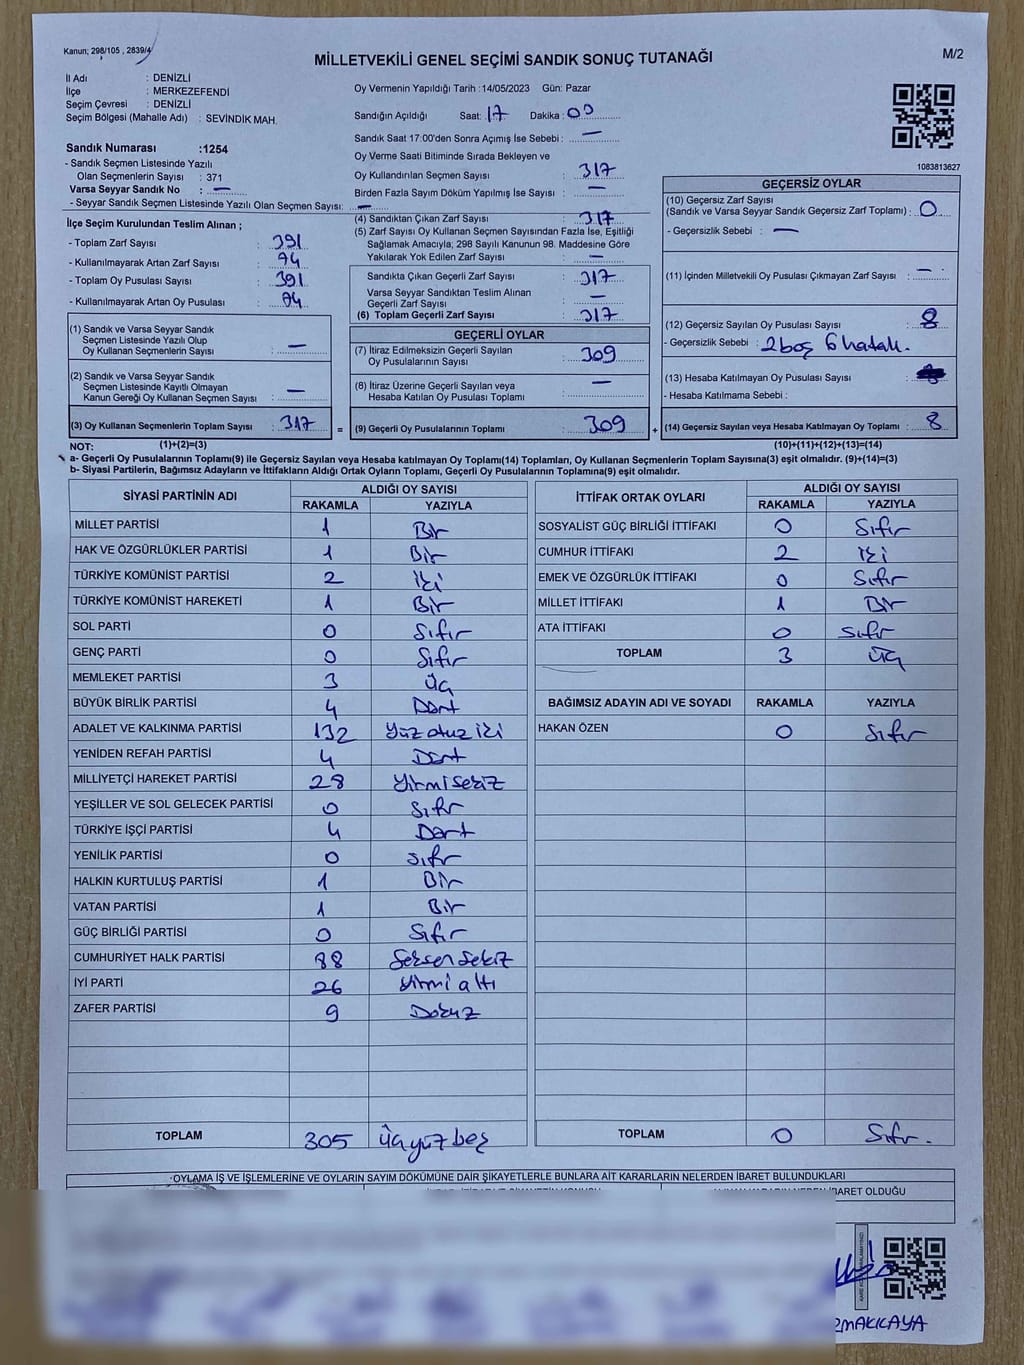 Kanun; 298/105 , 2839/4
MİLLETVEKİLİ GENEL SEÇİMİ SANDIK SONUÇ TUTANAĞI
M/2
İl Adı : DENİZLİ
İlçe : MERKEZEFENDİ
Seçim Çevresi : DENİZLİ
Seçim Bölgesi (Mahalle Adı) : SEVİNDİK MAH.
Sandık Numarası :1254
- Sandık Seçmen Listesinde Yazılı
Olan Seçmenlerin Sayısı : 371
Varsa Seyyar Sandık No : —
- Seyyar Sandık Seçmen Listesinde Yazılı Olan Seçmen Sayısı: —
Oy Vermenin Yapıldığı Tarih :14/05/2023 Gün: Pazar
Sandığın Açıldığı Saat: 17 Dakika : 00
Sandık Saat 17:00'den Sonra Açımış İse Sebebi : —
Oy Verme Saati Bitiminde Sırada Bekleyen ve
Oy Kullandırılan Seçmen Sayısı : 317
Birden Fazla Sayım Döküm Yapılmış İse Sayısı : —
1083813627
İlçe Seçim Kurulundan Teslim Alınan ;
- Toplam Zarf Sayısı : 391
- Kullanılmayarak Artan Zarf Sayısı : 74
- Toplam Oy Pusulası Sayısı : 391
- Kullanılmayarak Artan Oy Pusulası : 74
(1) Sandık ve Varsa Seyyar Sandık
Seçmen Listesinde Yazılı Olup
Oy Kullanan Seçmenlerin Sayısı : —
(2) Sandık ve Varsa Seyyar Sandık
Seçmen Listesinde Kayıtlı Olmayan
Kanun Gereği Oy Kullanan Seçmen Sayısı : —
(3) Oy Kullanan Seçmenlerin Toplam Sayısı : 317
(4) Sandıktan Çıkan Zarf Sayısı : 317
(5) Zarf Sayısı Oy Kullanan Seçmen Sayısından Fazla İse, Eşitliği
Sağlamak Amacıyla; 298 Sayılı Kanunun 98. Maddesine Göre
Yakılarak Yok Edilen Zarf Sayısı : —
Sandıkta Çıkan Geçerli Zarf Sayısı : 317
Varsa Seyyar Sandıktan Teslim Alınan
Geçerli Zarf Sayısı : —
(6) Toplam Geçerli Zarf Sayısı : 317
GEÇERLİ OYLAR
(7) İtiraz Edilmeksizin Geçerli Sayılan
Oy Pusulalarının Sayısı : 309
(8) İtiraz Üzerine Geçerli Sayılan veya
Hesaba Katılan Oy Pusulası Toplamı : —
= (9) Geçerli Oy Pusulalarının Toplamı : 309
GEÇERSİZ OYLAR
(10) Geçersiz Zarf Sayısı
(Sandık ve Varsa Seyyar Sandık Geçersiz Zarf Toplamı) : 0
- Geçersizlik Sebebi : —
(11) İçinden Milletvekili Oy Pusulası Çıkmayan Zarf Sayısı : —
(12) Geçersiz Sayılan Oy Pusulası Sayısı : 8
- Geçersizlik Sebebi : 2 boş 6 hatalı.
(13) Hesaba Katılmayan Oy Pusulası Sayısı :
- Hesaba Katılmama Sebebi :
+ (14) Geçersiz Sayılan veya Hesaba Katılmayan Oy Toplamı : 8
NOT: (1)+(2)=(3) (10)+(11)+(12)+(13)=(14)
a- Geçerli Oy Pusulalarının Toplamı(9) ile Geçersiz Sayılan veya Hesaba katılmayan Oy Toplamı(14) Toplamları, Oy Kullanan Seçmenlerin Toplam Sayısına(3) eşit olmalıdır. (9)+(14)=(3)
b- Siyasi Partilerin, Bağımsız Adayların ve İttifakların Aldığı Ortak Oyların Toplamı, Geçerli Oy Pusulalarının Toplamına(9) eşit olmalıdır.
SİYASİ PARTİNİN ADI ALDIĞI OY SAYISI
RAKAMLA YAZIYLA
MİLLET PARTİSİ 1 Bir
HAK VE ÖZGÜRLÜKLER PARTİSİ 1 Bir
TÜRKİYE KOMÜNİST PARTİSİ 2 iki
TÜRKİYE KOMÜNİST HAREKETİ 1 Bir
SOL PARTİ 0 Sıfır
GENÇ PARTİ 0 Sıfır
MEMLEKET PARTİSİ 3 üç
BÜYÜK BİRLİK PARTİSİ 4 Dört
ADALET VE KALKINMA PARTİSİ 132 Yüz otuz iki
YENİDEN REFAH PARTİSİ 4 Dört
MİLLİYETÇİ HAREKET PARTİSİ 28 Yirmi sekiz
YEŞİLLER VE SOL GELECEK PARTİSİ 0 Sıfır
TÜRKİYE İŞÇİ PARTİSİ 4 Dört
YENİLİK PARTİSİ 0 Sıfır
HALKIN KURTULUŞ PARTİSİ 1 Bir
VATAN PARTİSİ 1 Bir
GÜÇ BİRLİĞİ PARTİSİ 0 Sıfır
CUMHURİYET HALK PARTİSİ 88 Seksen Sekiz
İYİ PARTİ 26 Yirmi altı
ZAFER PARTİSİ 9 Dokuz
TOPLAM 305 üçyüz beş
İTTİFAK ORTAK OYLARI ALDIĞI OY SAYISI
RAKAMLA YAZIYLA
SOSYALİST GÜÇ BİRLİĞİ İTTİFAKI 0 Sıfır
CUMHUR İTTİFAKI 2 iki
EMEK VE ÖZGÜRLÜK İTTİFAKI 0 Sıfır
MİLLET İTTİFAKI 1 Bir
ATA İTTİFAKI 0 Sıfır
TOPLAM 3 üç
BAĞIMSIZ ADAYIN ADI VE SOYADI RAKAMLA YAZIYLA
HAKAN ÖZEN 0 Sıfır
TOPLAM 0 Sıfır.
OYLAMA İŞ VE İŞLEMLERİNE VE OYLARIN SAYIM DÖKÜMÜNE DAİR ŞİKAYETLERLE BUNLARA AİT KARARLARIN NELERDEN İBARET BULUNDUKLARI